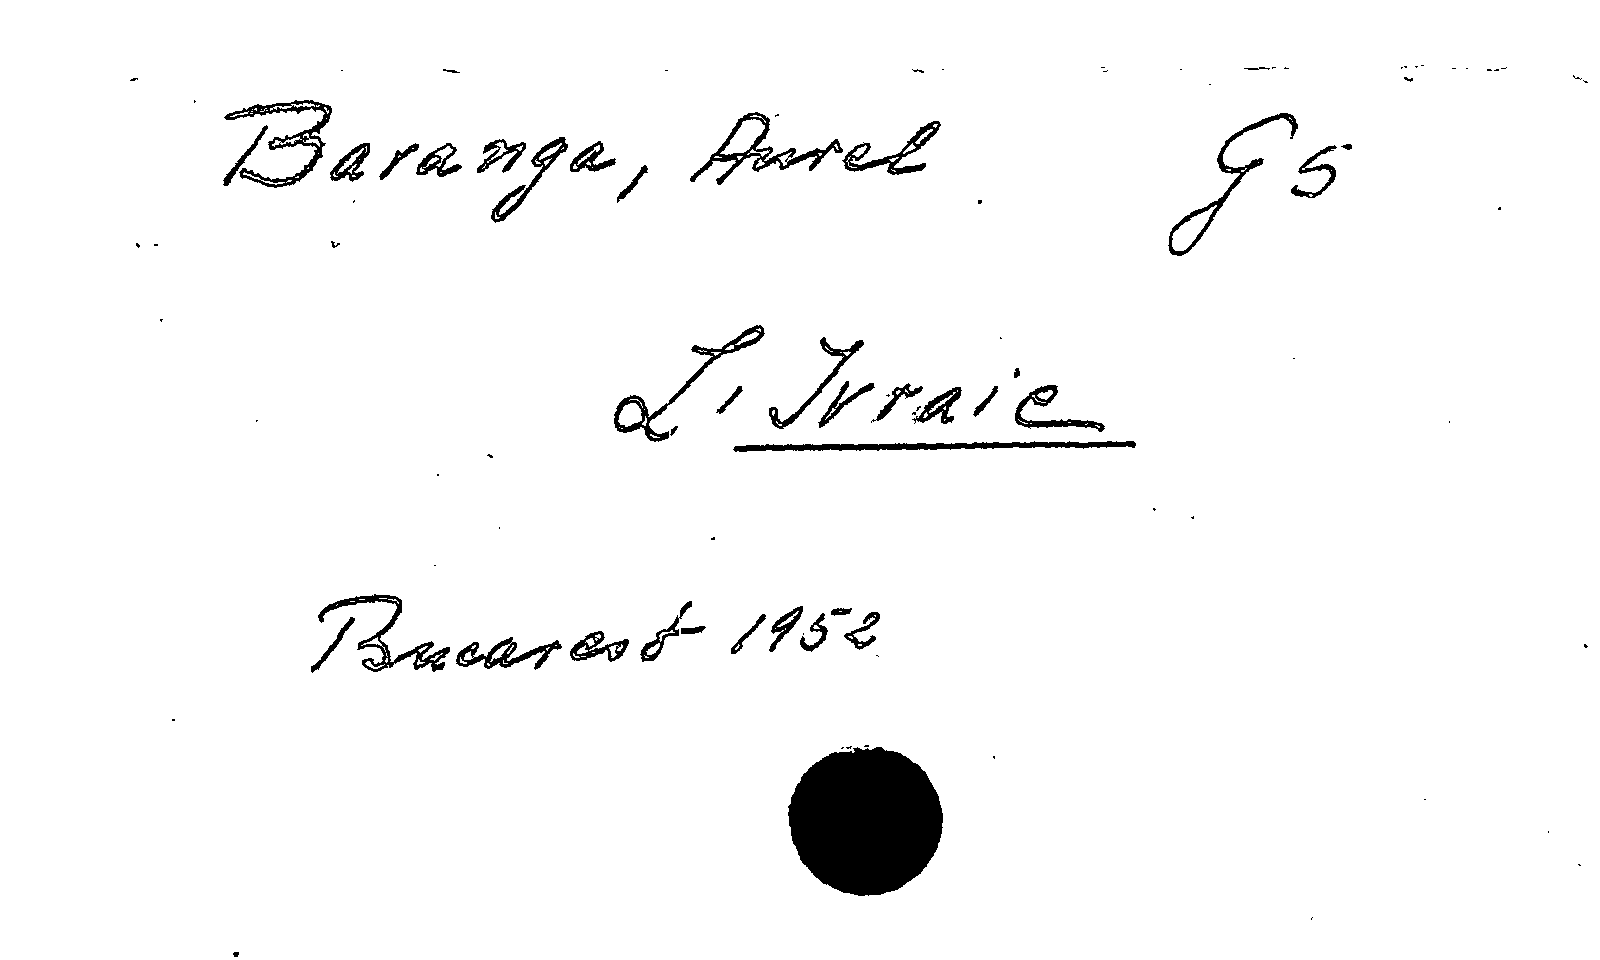 Baranga, Aurel G5
L'Ivraie
Bucarest 1952